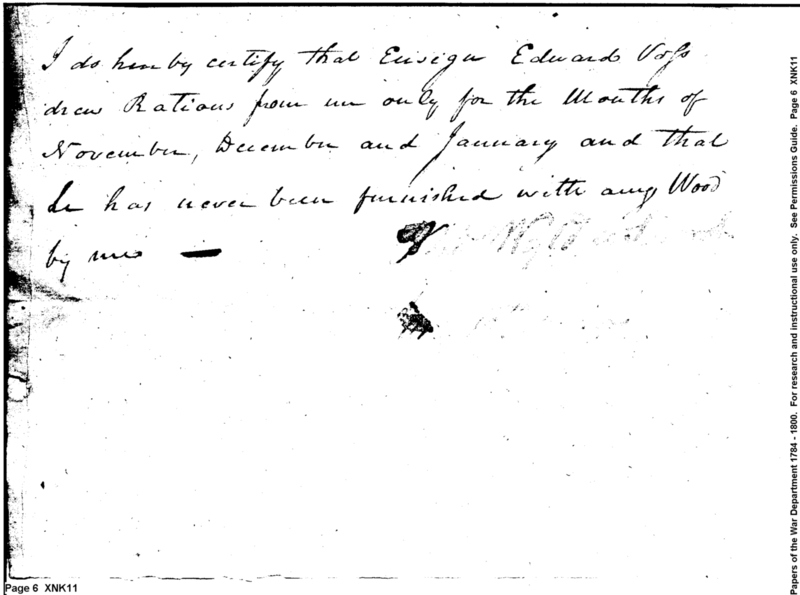 I do hereby certify that Ensign Edward Voss
drew Rations from me only for the Months of
November, December and January and that
he has never been furnished with any Wood
by me —
Page 6 XNK11
Papers of the War Department 1784 - 1800. For research and instructional use only. See Permissions Guide. Page 6 XNK11